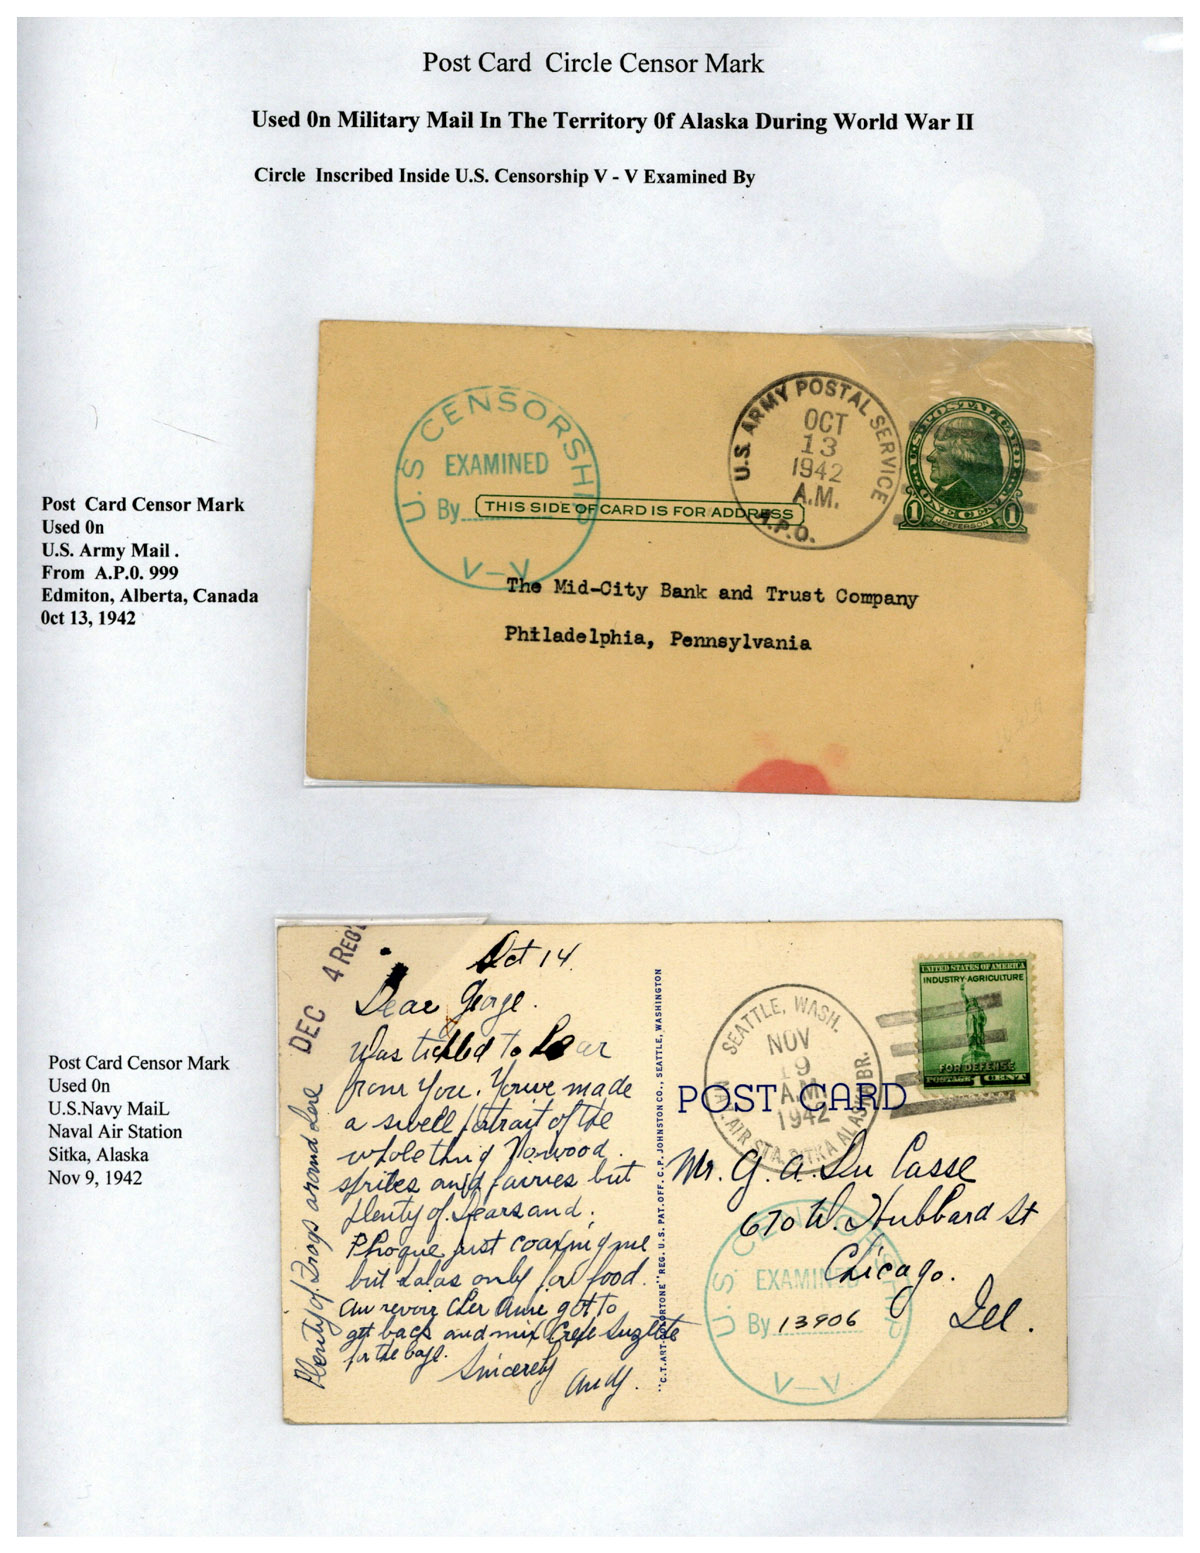 Post Card Circle Censor Mark
Used 0n Military Mail In The Territory 0f Alaska During World War II
Circle Inscribed Inside U.S. Censorship V - V Examined By
Post Card Censor Mark
Used 0n
U.S. Army Mail .
From A.P.0. 999
Edmiton, Alberta, Canada
0ct 13, 1942
U.S CENSORSHIP
EXAMINED
By
V-V
U.S. ARMY POSTAL SERVICE
OCT
13
1942
A.M.
A.P.O.
1 JEFFERSON 1
THIS SIDE OF CARD IS FOR ADDRESS
The Mid-City Bank and Trust Company
Philadelphia, Pennsylvania
Post Card Censor Mark
Used 0n
U.S.Navy MaiL
Naval Air Station
Sitka, Alaska
Nov 9, 1942
DEC 4 REC'D
Oct 14.
Dear George.
Was tickled to hear
from you. You've made
a swell portrait of the
whole thing Norwood.
sprites and fairies but
plenty of bears and.
Phoque just coaxing me
but halas only for food.
au revoir cher ami got to
get back and mix Crepe Suzette
for the boys.
Sincerely
Andy.
Plenty of Frogs around here
"C.T.ART-COLORTONE" REG. U.S. PAT. OFF. C.P. JOHNSTON CO., SEATTLE, WASHINGTON
SEATTLE, WASH.
NOV
9
A.M.
1942
AIR STA. SITKA ALASKA BR.
UNITED STATES OF AMERICA
INDUSTRY-AGRICULTURE
FOR DEFENSE
POSTAGE 1 CENT
POST CARD
Mr. G. A. Du Casse
670 W. Hubbard St
Chicago.
Ill.
U.S. CENSORSHIP
EXAMINED
By 13906
V-V